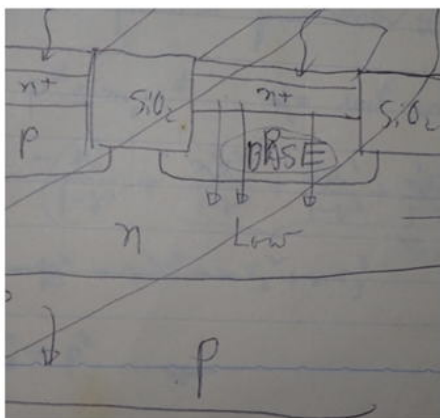 n+ SiO₂ n+ SiO₂
P P BASE
n Low
P